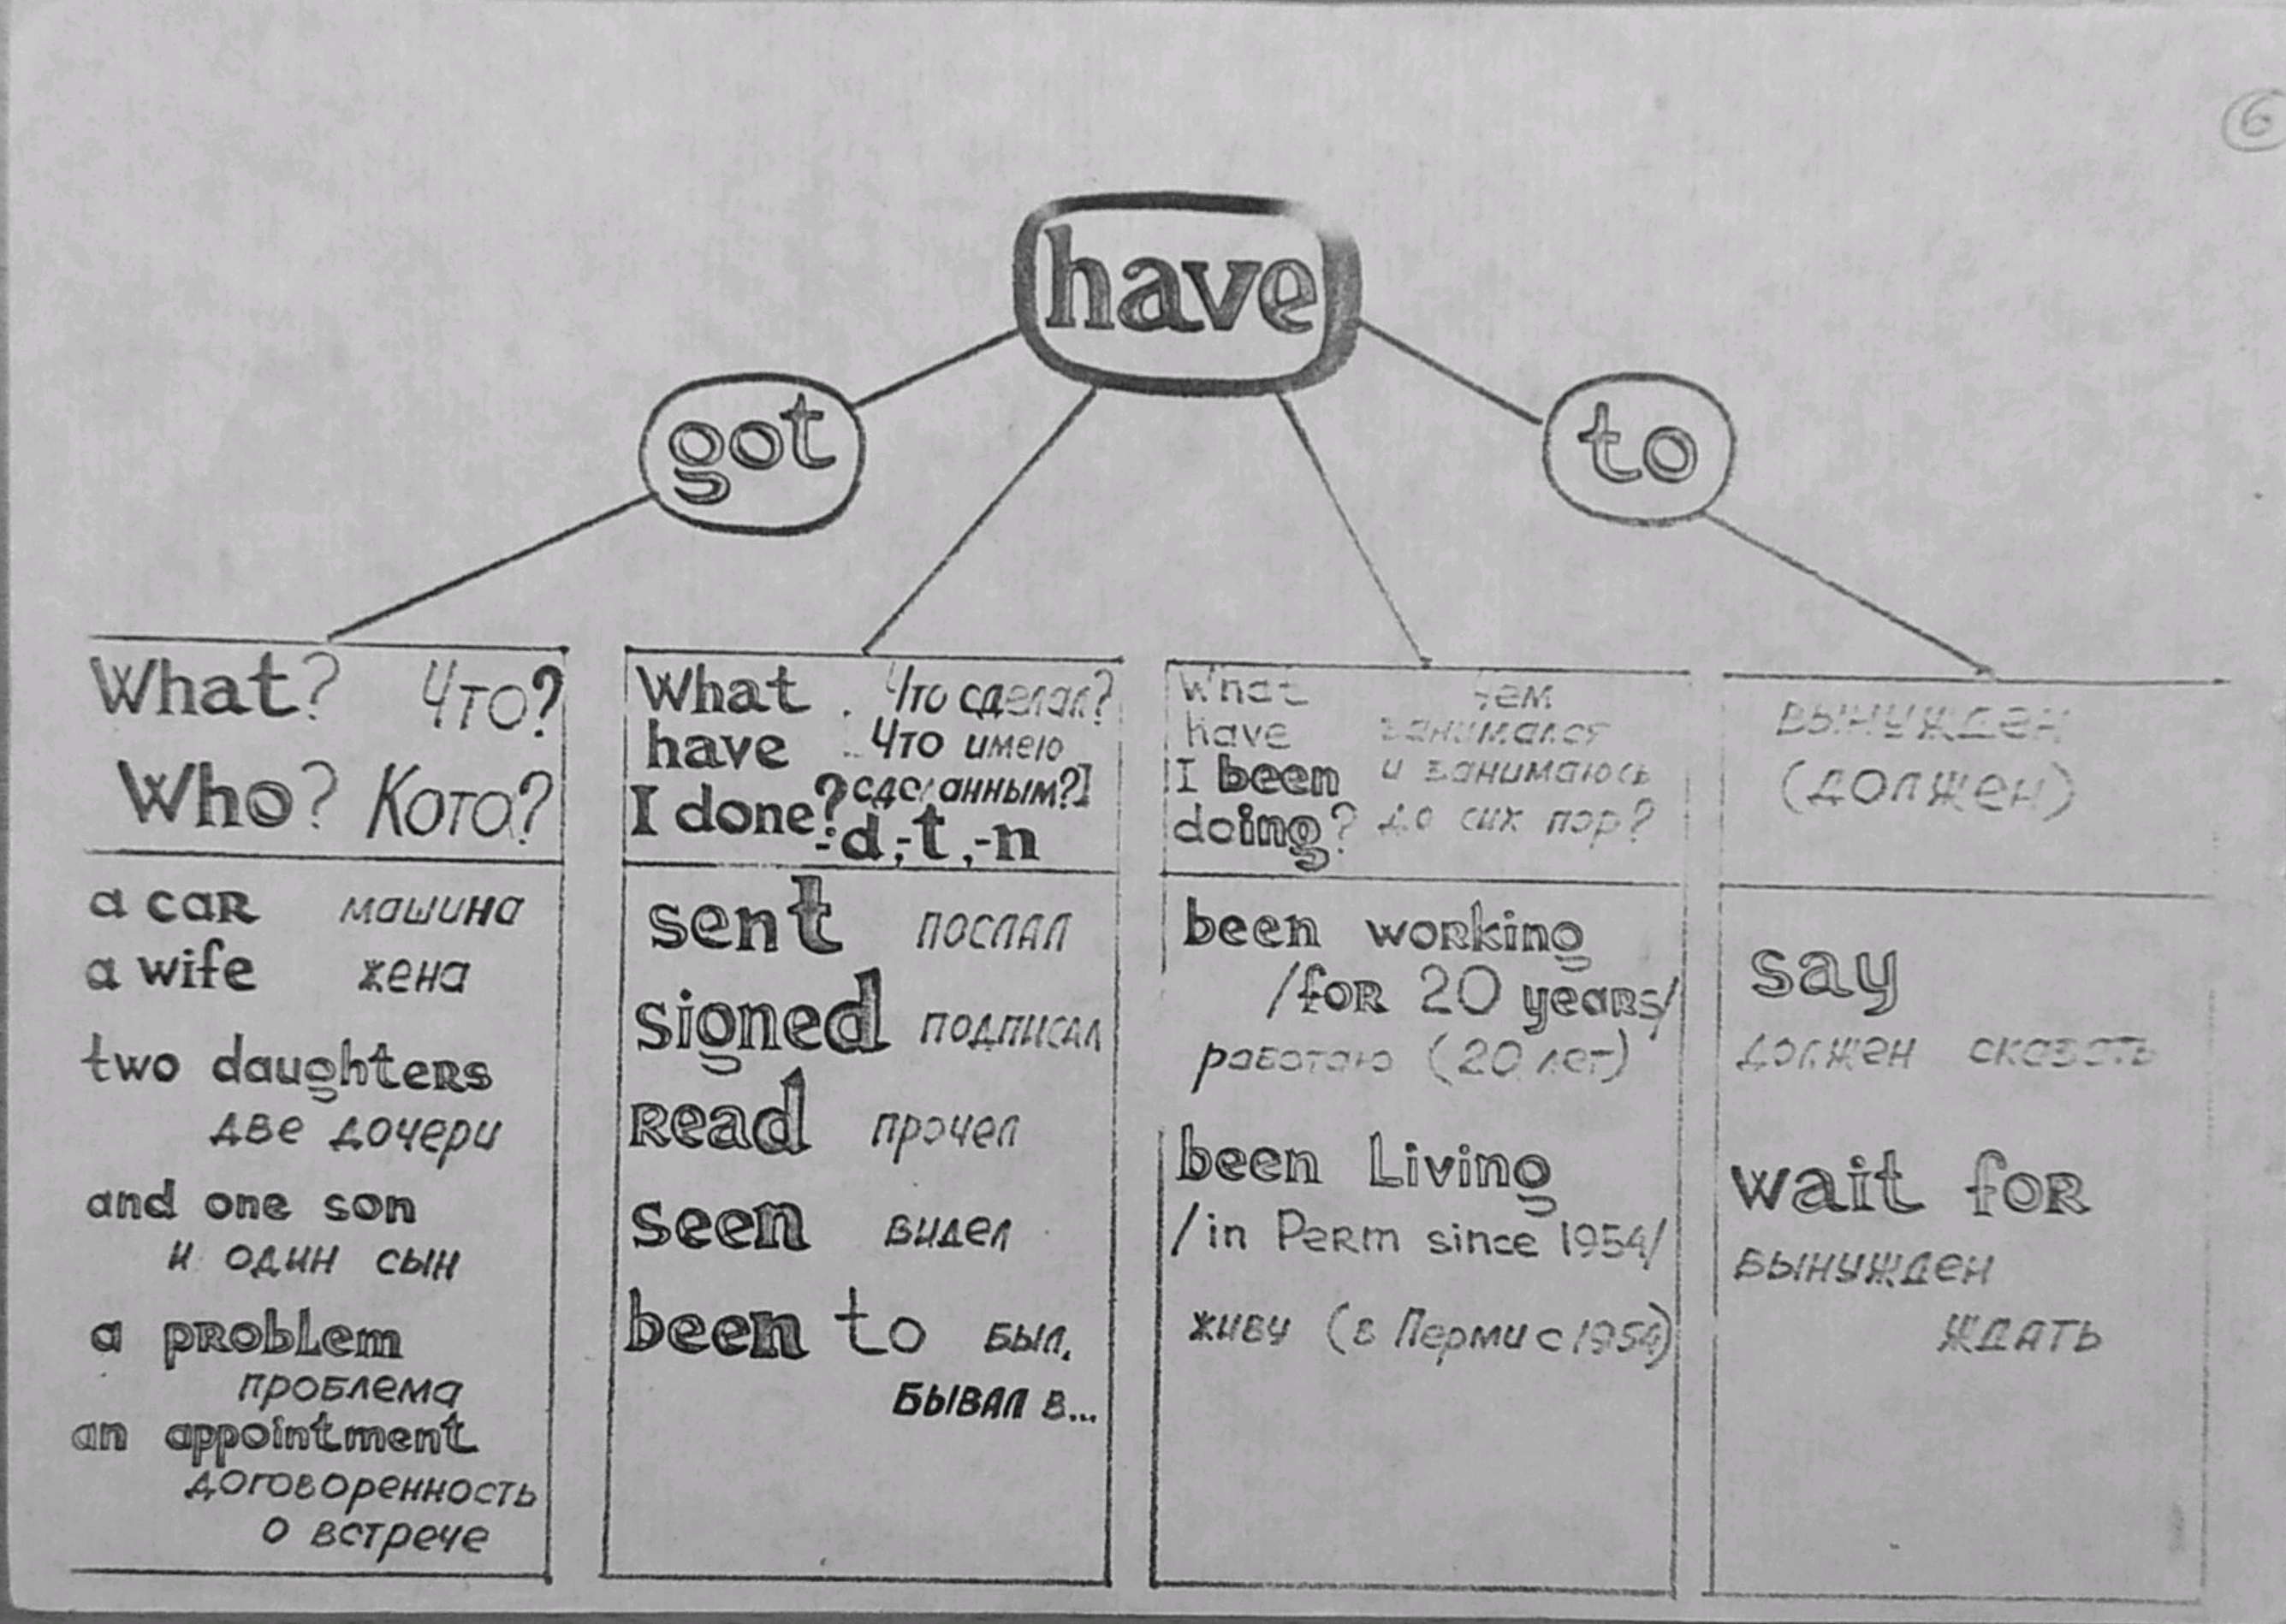 6
have
got
to
What? Что?
Who? Кого?
a car машина
a wife жена
two daughters
две дочери
and one son
и один сын
a problem
проблема
an appointment
договоренность
о встрече
What Что сделал?
have Что имею
I done? сделанным?]
-d,-t,-n
sent послал
signed подписал
Read прочел
seen видел
been to был,
бывал в...
What Чем
have занимался
I been и занимаюсь
doing? до сих пор?
been working
/for 20 years/
работаю (20 лет)
been Living
/in Perm since 1954/
живу (в Перми с 1954)
вынужден
(должен)
say
должен сказать
wait for
вынужден
ждать